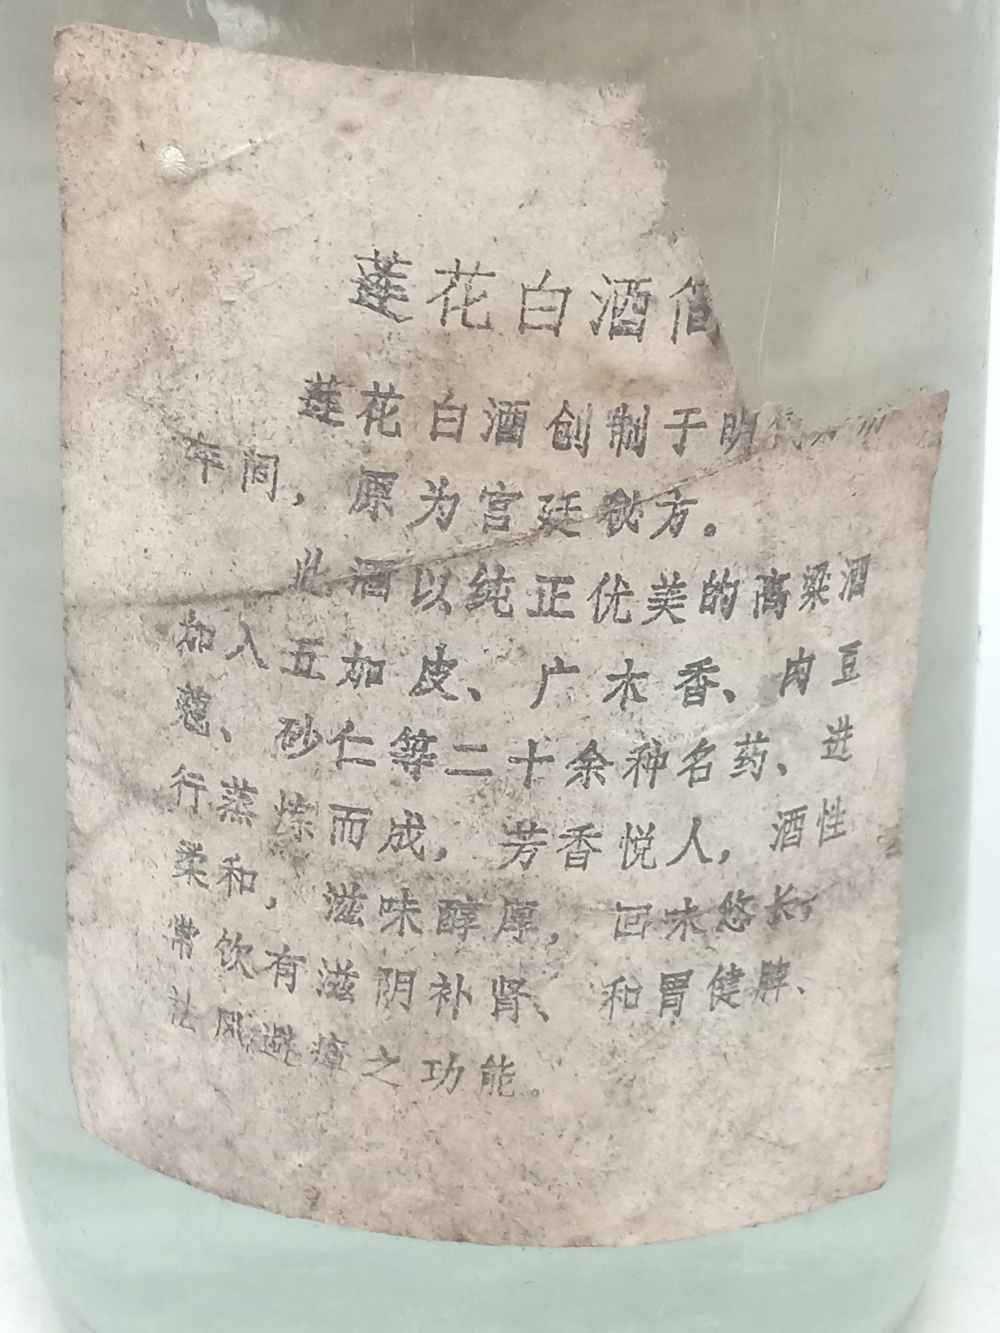 莲花白酒
莲花白酒创制于明代
年间，原为宫廷秘方。
此酒以纯正优美的高粱酒
加入五加皮、广木香、肉豆
蔻、砂仁等二十余种名药、进
行蒸炼而成，芳香悦人，酒性
柔和，滋味醇厚，回味悠长，
常饮有滋阴补肾、和胃健脾、
祛风避瘴之功能。